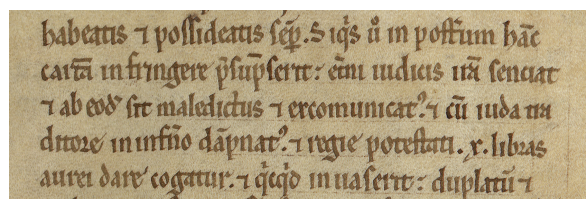 habeatis ⁊ possideatis sēp̄. Siq̇s u̇o in post̄um hāc
cartā infringere p̄sūpserit: et̄ni iudicis irā senciat
⁊ ab eod̄ sit maledictus ⁊ excomunicat᾿. ⁊ cū iuda tra
ditore in inf̄no dāpnat᾿. ⁊ regie potestati. x. libras
aurei dare cogatur. ⁊ q̇cq̇d inuaserit: duplatū ⁊